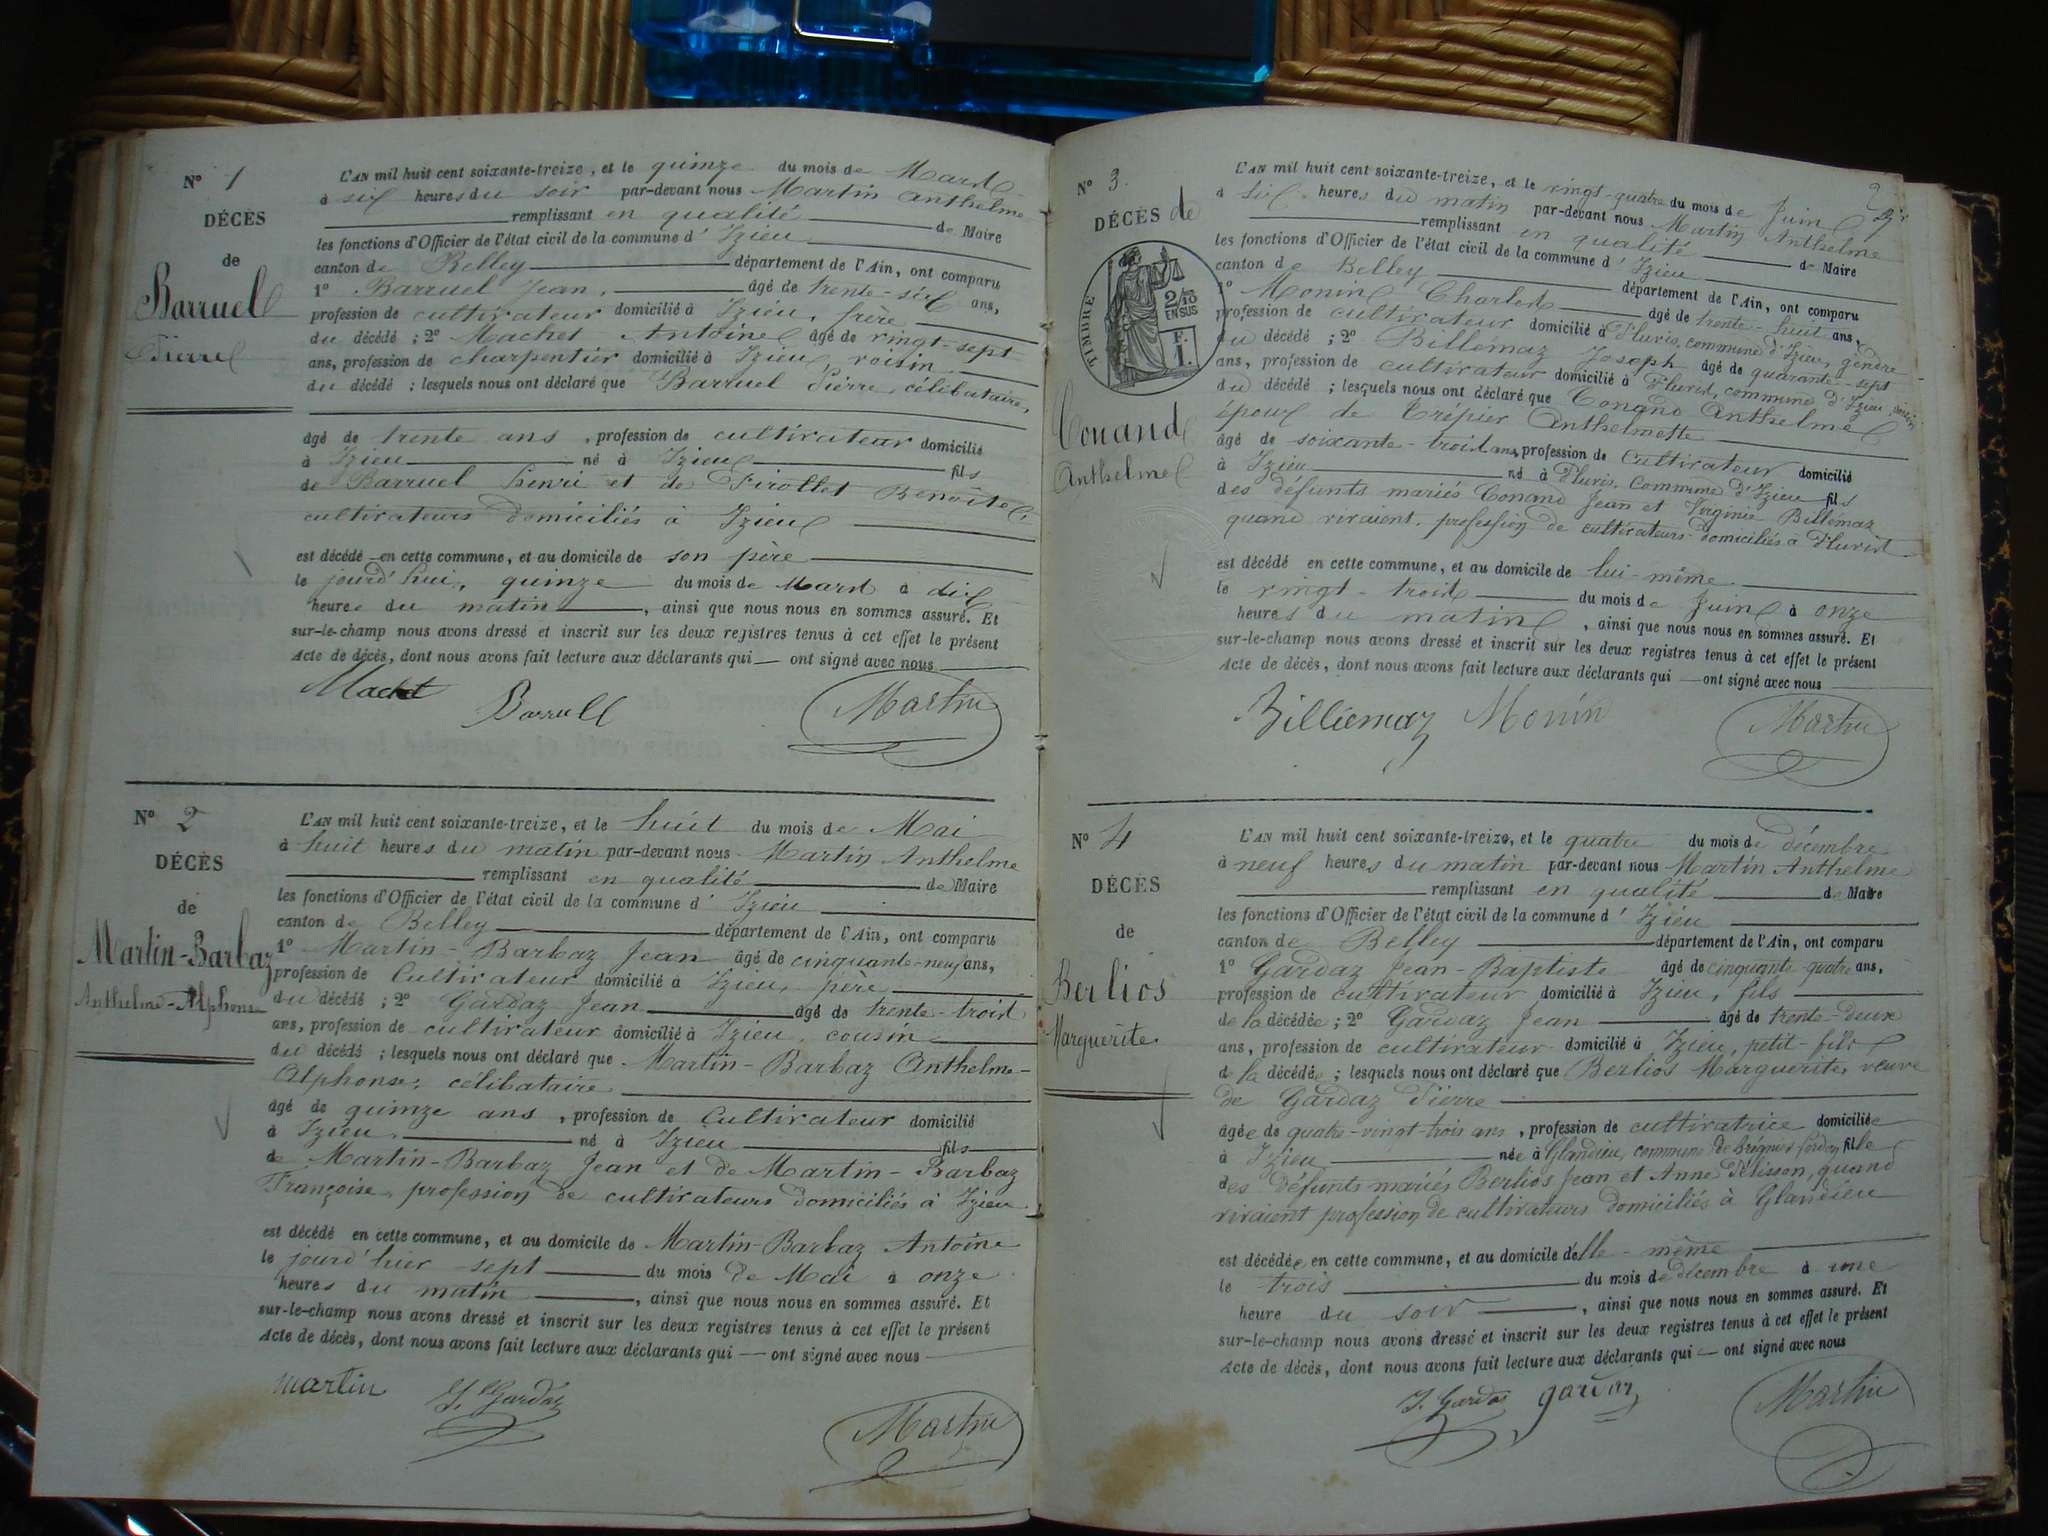 N° 1
DÉCÈS
de
Barruel
Pierre
L'AN mil huit cent soixante-treize, et le quinze du mois de Mars
à six heures du soir par-devant nous Martin Anthelme
remplissant en qualité de Maire
les fonctions d'Officier de l'état civil de la commune d'Izieu
canton de Belley département de l'Ain, ont comparu
1° Barruel Jean, âgé de trente-six ans,
profession de cultivateur domicilié à Izieu, père
du décédé ; 2° Machet Antoine âgé de vingt-sept
ans, profession de charpentier domicilié à Izieu, voisin
du décédé ; lesquels nous ont déclaré que Barruel Pierre, célibataire,
âgé de trente ans, profession de cultivateur domicilié
à Izieu né à Izieu fils
de Barruel Henri et de Pirollet Benoîte,
cultivateurs domiciliés à Izieu
est décédé en cette commune, et au domicile de son père
le jourd'hui, quinze du mois de Mars à dix
heures du matin, ainsi que nous nous en sommes assuré. Et
sur-le-champ nous avons dressé et inscrit sur les deux registres tenus à cet effet le présent
Acte de décès, dont nous avons fait lecture aux déclarants qui — ont signé avec nous
Machet Barruel Martin
N° 2
DÉCÈS
de
Martin-Barbaz
Anthelme-Alphonse
L'AN mil huit cent soixante-treize, et le huit du mois de Mai
à huit heures du matin par-devant nous Martin Anthelme
remplissant en qualité de Maire
les fonctions d'Officier de l'état civil de la commune d'Izieu
canton de Belley département de l'Ain, ont comparu
1° Martin-Barbaz Jean âgé de cinquante-neuf ans,
profession de Cultivateur domicilié à Izieu, père
du décédé ; 2° Gardaz Jean âgé de trente-trois
ans, profession de cultivateur domicilié à Izieu, cousin
du décédé ; lesquels nous ont déclaré que Martin-Barbaz Anthelme-
Alphonse, célibataire
âgé de quinze ans, profession de Cultivateur domicilié
à Izieu, né à Izieu fils
de Martin-Barbaz Jean et de Martin-Barbaz
Françoise, profession de cultivateurs domiciliés à Izieu
est décédé en cette commune, et au domicile de Martin-Barbaz Antoine
le jourd'hier sept du mois de Mai à onze
heures du matin, ainsi que nous nous en sommes assuré. Et
sur-le-champ nous avons dressé et inscrit sur les deux registres tenus à cet effet le présent
Acte de décès, dont nous avons fait lecture aux déclarants qui — ont signé avec nous
martin J. Gardaz Martin
N° 3.
DÉCÈS de
TIMBRE
2/10
EN SUS
F.
1.
Conand
Anthelme
L'AN mil huit cent soixante-treize, et le vingt-quatre du mois de Juin
à six heures du matin par-devant nous Martin Anthelme
remplissant en qualité de Maire
les fonctions d'Officier de l'état civil de la commune d'Izieu
canton de Belley département de l'Ain, ont comparu
1° Monin Charles âgé de trente-huit ans,
profession de cultivateur domicilié à Pluvis, commune d'Izieu, gendre
du décédé ; 2° Billémaz Joseph âgé de quarante-sept
ans, profession de cultivateur domicilié à Pluvis, commune d'Izieu, voisin
du décédé ; lesquels nous ont déclaré que Conand Anthelme
époux de Trépier Anthelmette
âgé de soixante-trois ans, profession de Cultivateur domicilié
à Izieu né à Pluvis, Commune d'Izieu fils
des défunts mariés Conand Jean et Virginie Billémaz
quand vivaient, profession de cultivateurs domiciliés à Pluvis
est décédé en cette commune, et au domicile de lui-même
le vingt-trois du mois de Juin à onze
heures du matin, ainsi que nous nous en sommes assuré. Et
sur-le-champ nous avons dressé et inscrit sur les deux registres tenus à cet effet le présent
Acte de décès, dont nous avons fait lecture aux déclarants qui — ont signé avec nous
Billiemaz Monin Martin
N° 4
DÉCÈS
de
Berlios
Marguerite
L'AN mil huit cent soixante-treize, et le quatre du mois de décembre
à neuf heures du matin par-devant nous Martin Anthelme
remplissant en qualité de Maire
les fonctions d'Officier de l'état civil de la commune d'Izieu
canton de Belley département de l'Ain, ont comparu
1° Gardaz Jean-Baptiste âgé de cinquante-quatre ans,
profession de cultivateur domicilié à Izieu, fils
de la décédée ; 2° Gardaz Jean âgé de trente-deux
ans, profession de cultivateur domicilié à Izieu, petit-fils
de la décédée ; lesquels nous ont déclaré que Berlios Marguerite, veuve
de Gardaz Pierre
âgée de quatre-vingt-trois ans, profession de cultivatrice domiciliée
à Izieu née à Glandieu, commune de Brégnier-Cordon fille
des défunts mariés Berlios Jean et Anne Pélisson, quand
vivaient profession de cultivateurs domiciliés à Glandieu
est décédée en cette commune, et au domicile d'elle-même
le trois du mois de décembre à une
heure du soir, ainsi que nous nous en sommes assuré. Et
sur-le-champ nous avons dressé et inscrit sur les deux registres tenus à cet effet le présent
Acte de décès, dont nous avons fait lecture aux déclarants qui — ont signé avec nous
J. Gardaz gardaz Martin